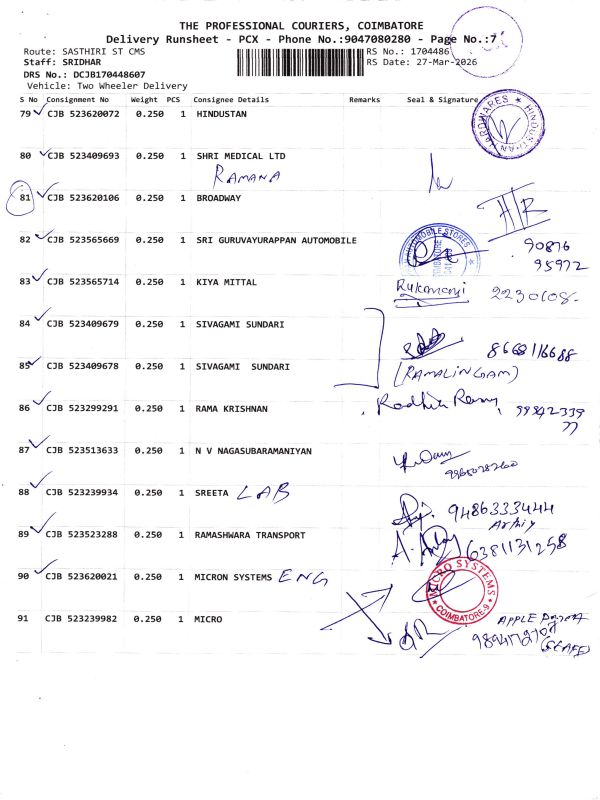 THE PROFESSIONAL COURIERS, COIMBATORE
Delivery Runsheet - PCX - Phone No.:9047080280 - Page No.:7
Route: SASTHIRI ST CMS
RS No.: 1704486
Staff: SRIDHAR
RS Date: 27-Mar-2026
DRS No.: DCJB170448607
Vehicle: Two Wheeler Delivery
S No Consignment No Weight PCS Consignee Details Remarks Seal & Signature
79 CJB 523620072 0.250 1 HINDUSTAN
HARDWARES * HINDUSTHAN
80 CJB 523409693 0.250 1 SHRI MEDICAL LTD
RAMANA
81 CJB 523620106 0.250 1 BROADWAY
82 CJB 523565669 0.250 1 SRI GURUVAYURAPPAN AUTOMOBILE
90876
95972
83 CJB 523565714 0.250 1 KIYA MITTAL
Rukamani 2230108-
84 CJB 523409679 0.250 1 SIVAGAMI SUNDARI
8668116688
85 CJB 523409678 0.250 1 SIVAGAMI SUNDARI
(RAMALINGAM)
86 CJB 523299291 0.250 1 RAMA KRISHNAN
99842339
77
87 CJB 523513633 0.250 1 N V NAGASUBARAMANIYAN
88 CJB 523239934 0.250 1 SREETA LAB
9486333444
89 CJB 523523288 0.250 1 RAMASHWARA TRANSPORT
6381131258
90 CJB 523620021 0.250 1 MICRON SYSTEMS ENG
MICRO SYSTEMS * COIMBATORE-9 *
91 CJB 523239982 0.250 1 MICRO
APPLE
(STAFF)